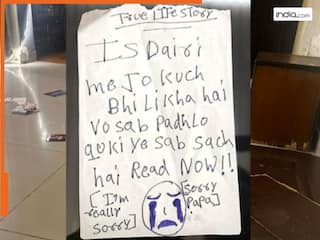 india.com
True Life Story
Is Dairi
me Jo kuch
Bhi Likha hai
Vo sab Padhlo
quki Ye sab sach
hai Read NOW!!
[I'm really sorry]
[sorry Papa]